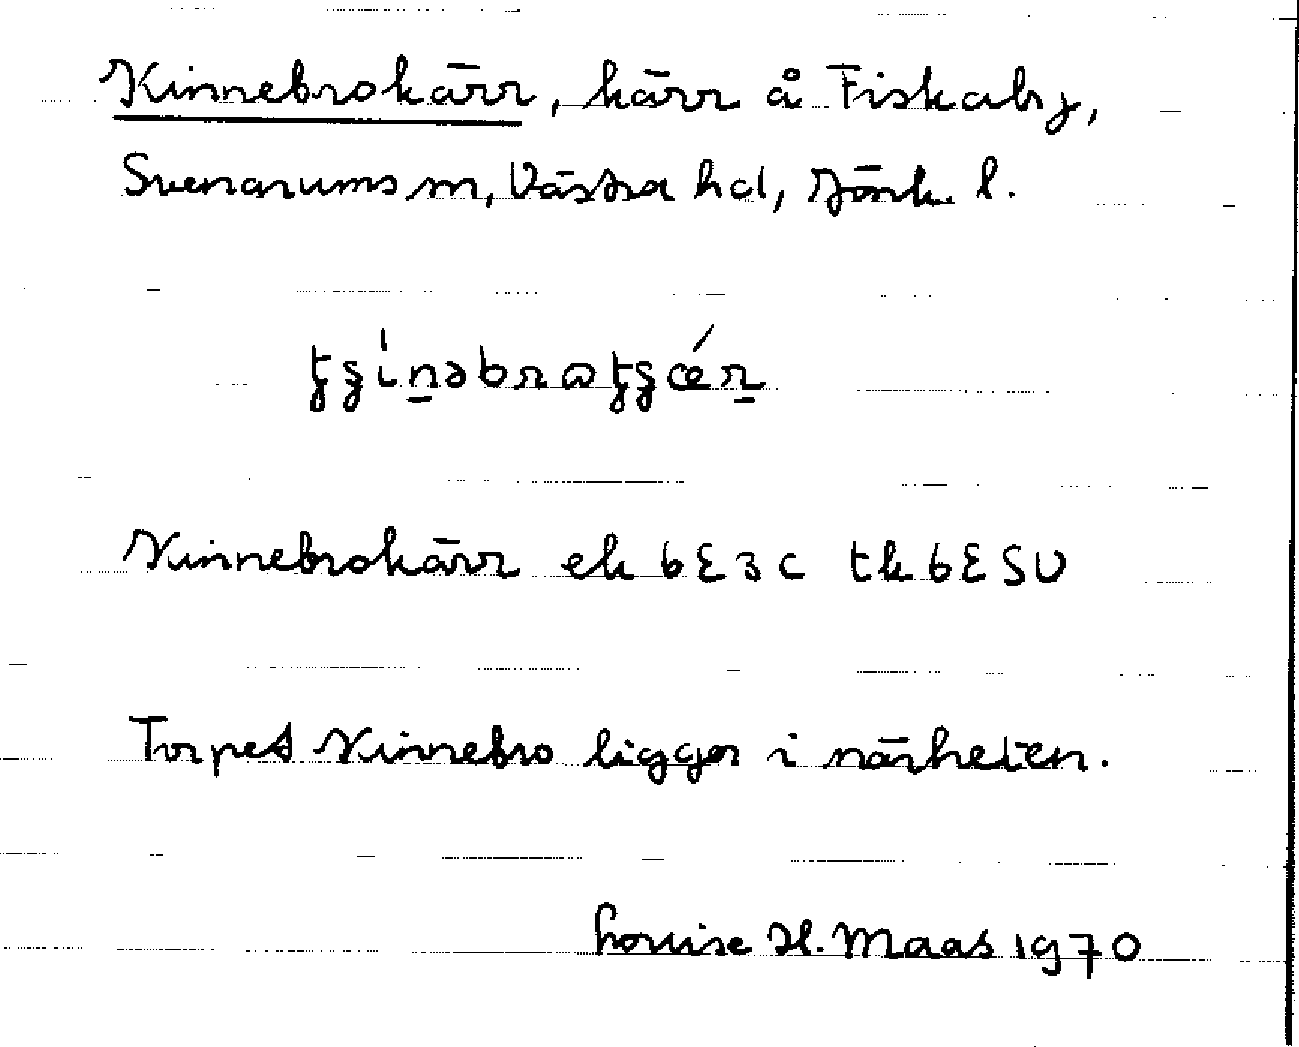 Kinnebrokärr, kärr å Fiskaby,
Svenarums sn, Västra hd, Jönk. l.
Kinnebrokärr ek 6E3c tk 6E5U
Torpet Kinnebro ligger i närheten.
Louise H. Maas 1970